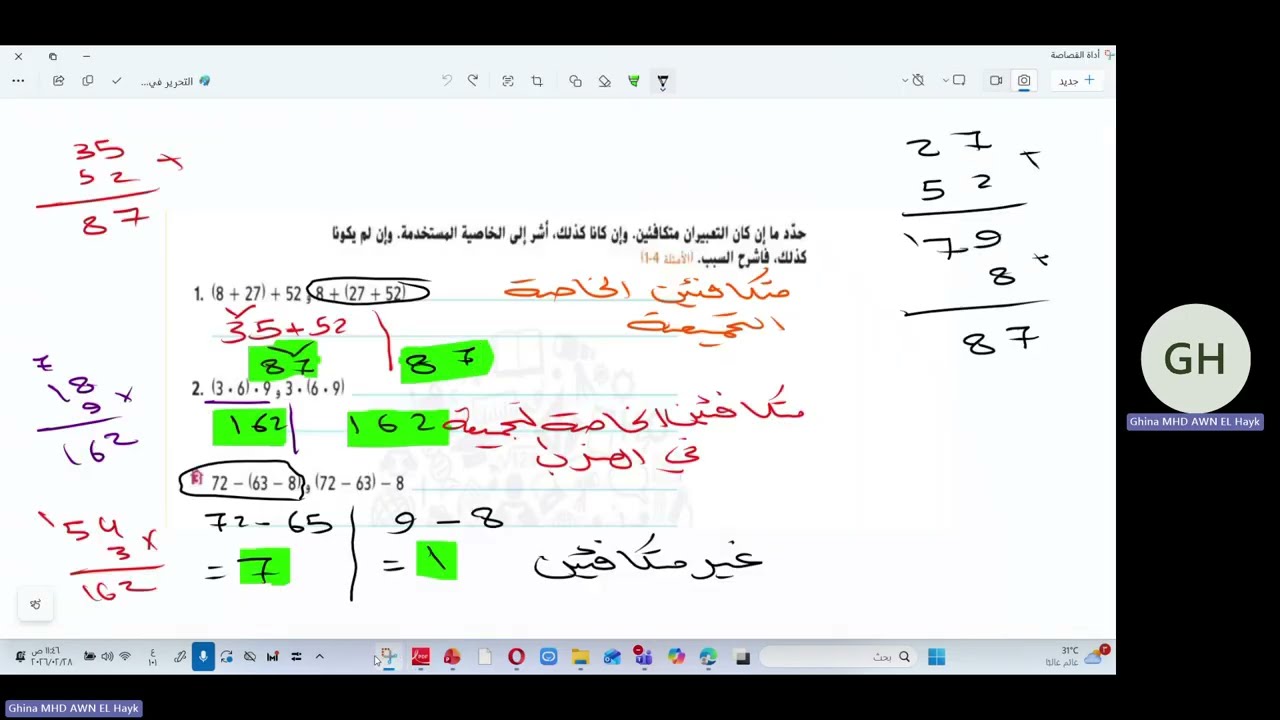 أداة القصاصة
جديد
التحرير في...
35
52 +
87
27 +
52
179
8 +
87
حدّد ما إن كان التعبيران متكافئين. وإن كانا كذلك، أشر إلى الخاصية المستخدمة. وإن لم يكونا
كذلك، فاشرح السبب. (الأمثلة 4-1)
1. (8 + 27) + 52 , 8 + (27 + 52)
متكافئين الخاصة
التجميعية
35 + 52
87
87
2. (3 · 6) · 9 , 3 · (6 · 9)
162
162
متكافئين الخاصة تجميعية
في الضرب
7
18
9 ×
162
3 72 − (63 − 8) , (72 − 63) − 8
72 − 65
9 − 8
= 7
= 1
غير متكافئين
1
54
3 ×
162
GH
Ghina MHD AWN EL Hayk
١١:٤٦ ص
٢٠٢٦/٠٢/٢٨
ع
١٠١
بحث
31°C
عالم غالبًا
Ghina MHD AWN EL Hayk